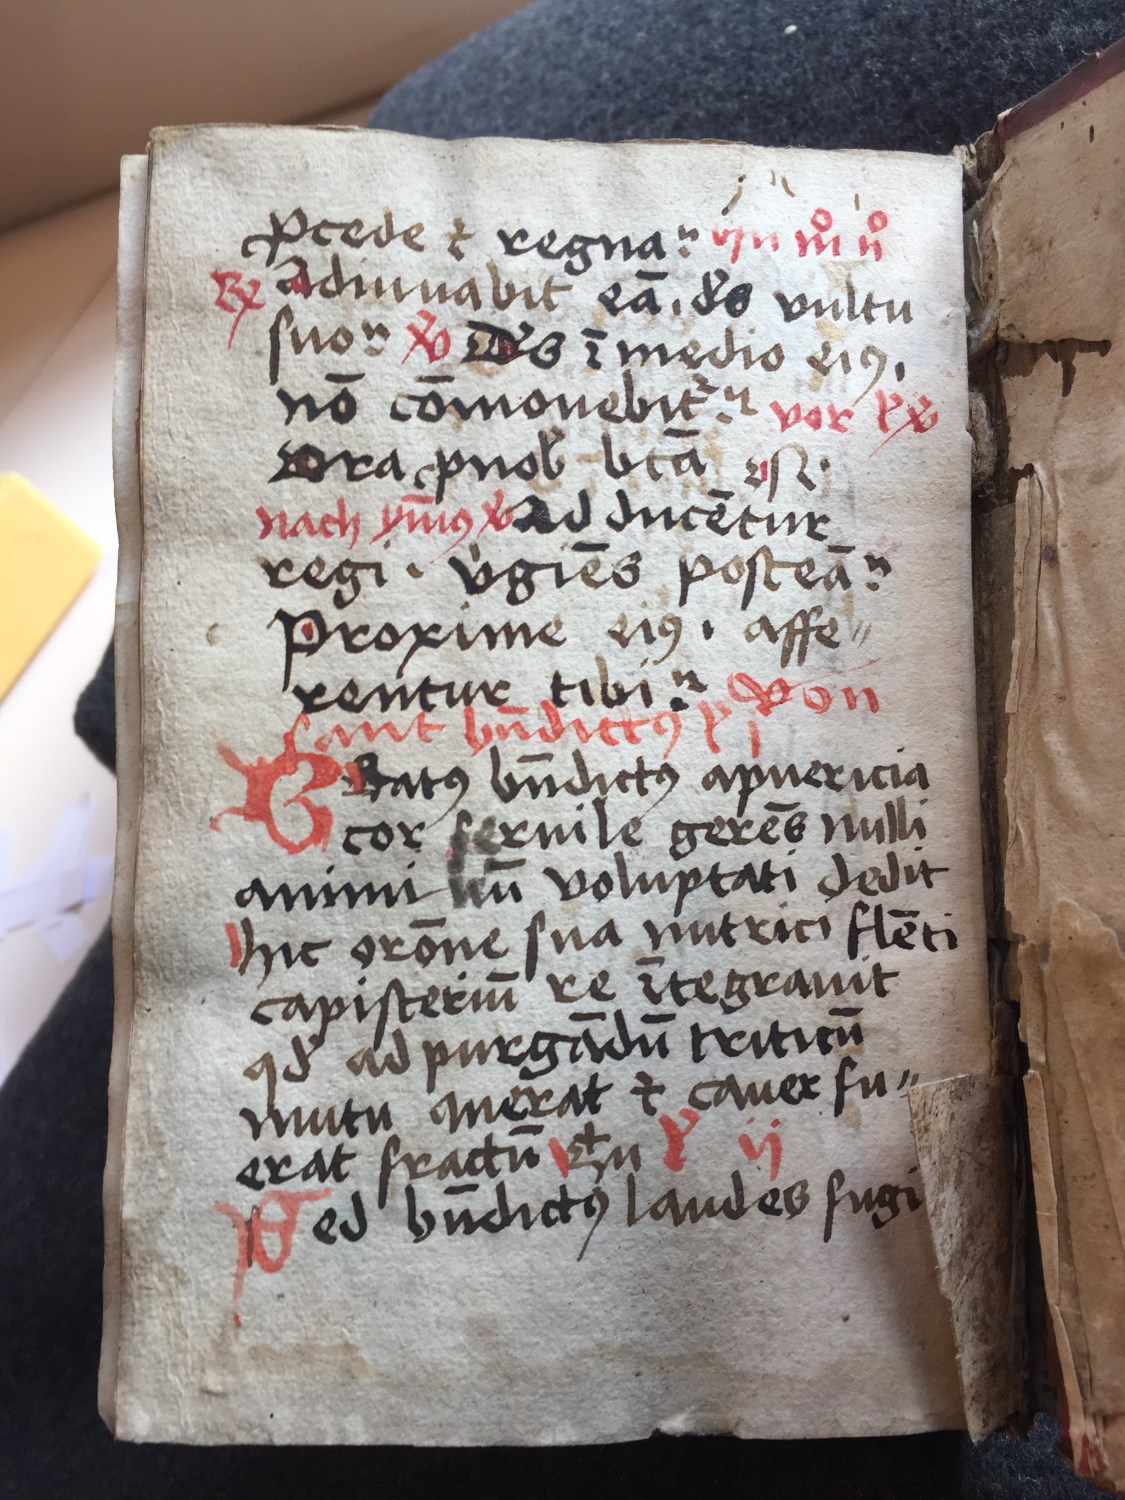 p̱cede ⁊ regna :" 
R̷ Adiuuabit eā . ds̄ vultu
suo :" v̷ Ds̄ ī medio eiꝯ .
nō cōmouebit᷑ :" vor
Ora p̱ nob̄ btā
nach ymꝯ v̷ Adducētur
regi . v̓giēs posteā :"
Proxime eiꝯ . affe〃
rentur tibi :" von
sant bn̄dictꝯ
Beatꝯ bn̄dictꝯ apuericia
cor seruile gerēs nulli
animū voluptati dedit
hic orōne sua nutrici flēti
capisteriū re ītegrauit
qd̓ ad purgādū triticū
mutu querat ⁊ cauer fu〃
erat fractū ij
Sed bn̄dictꝯ laudes fugi